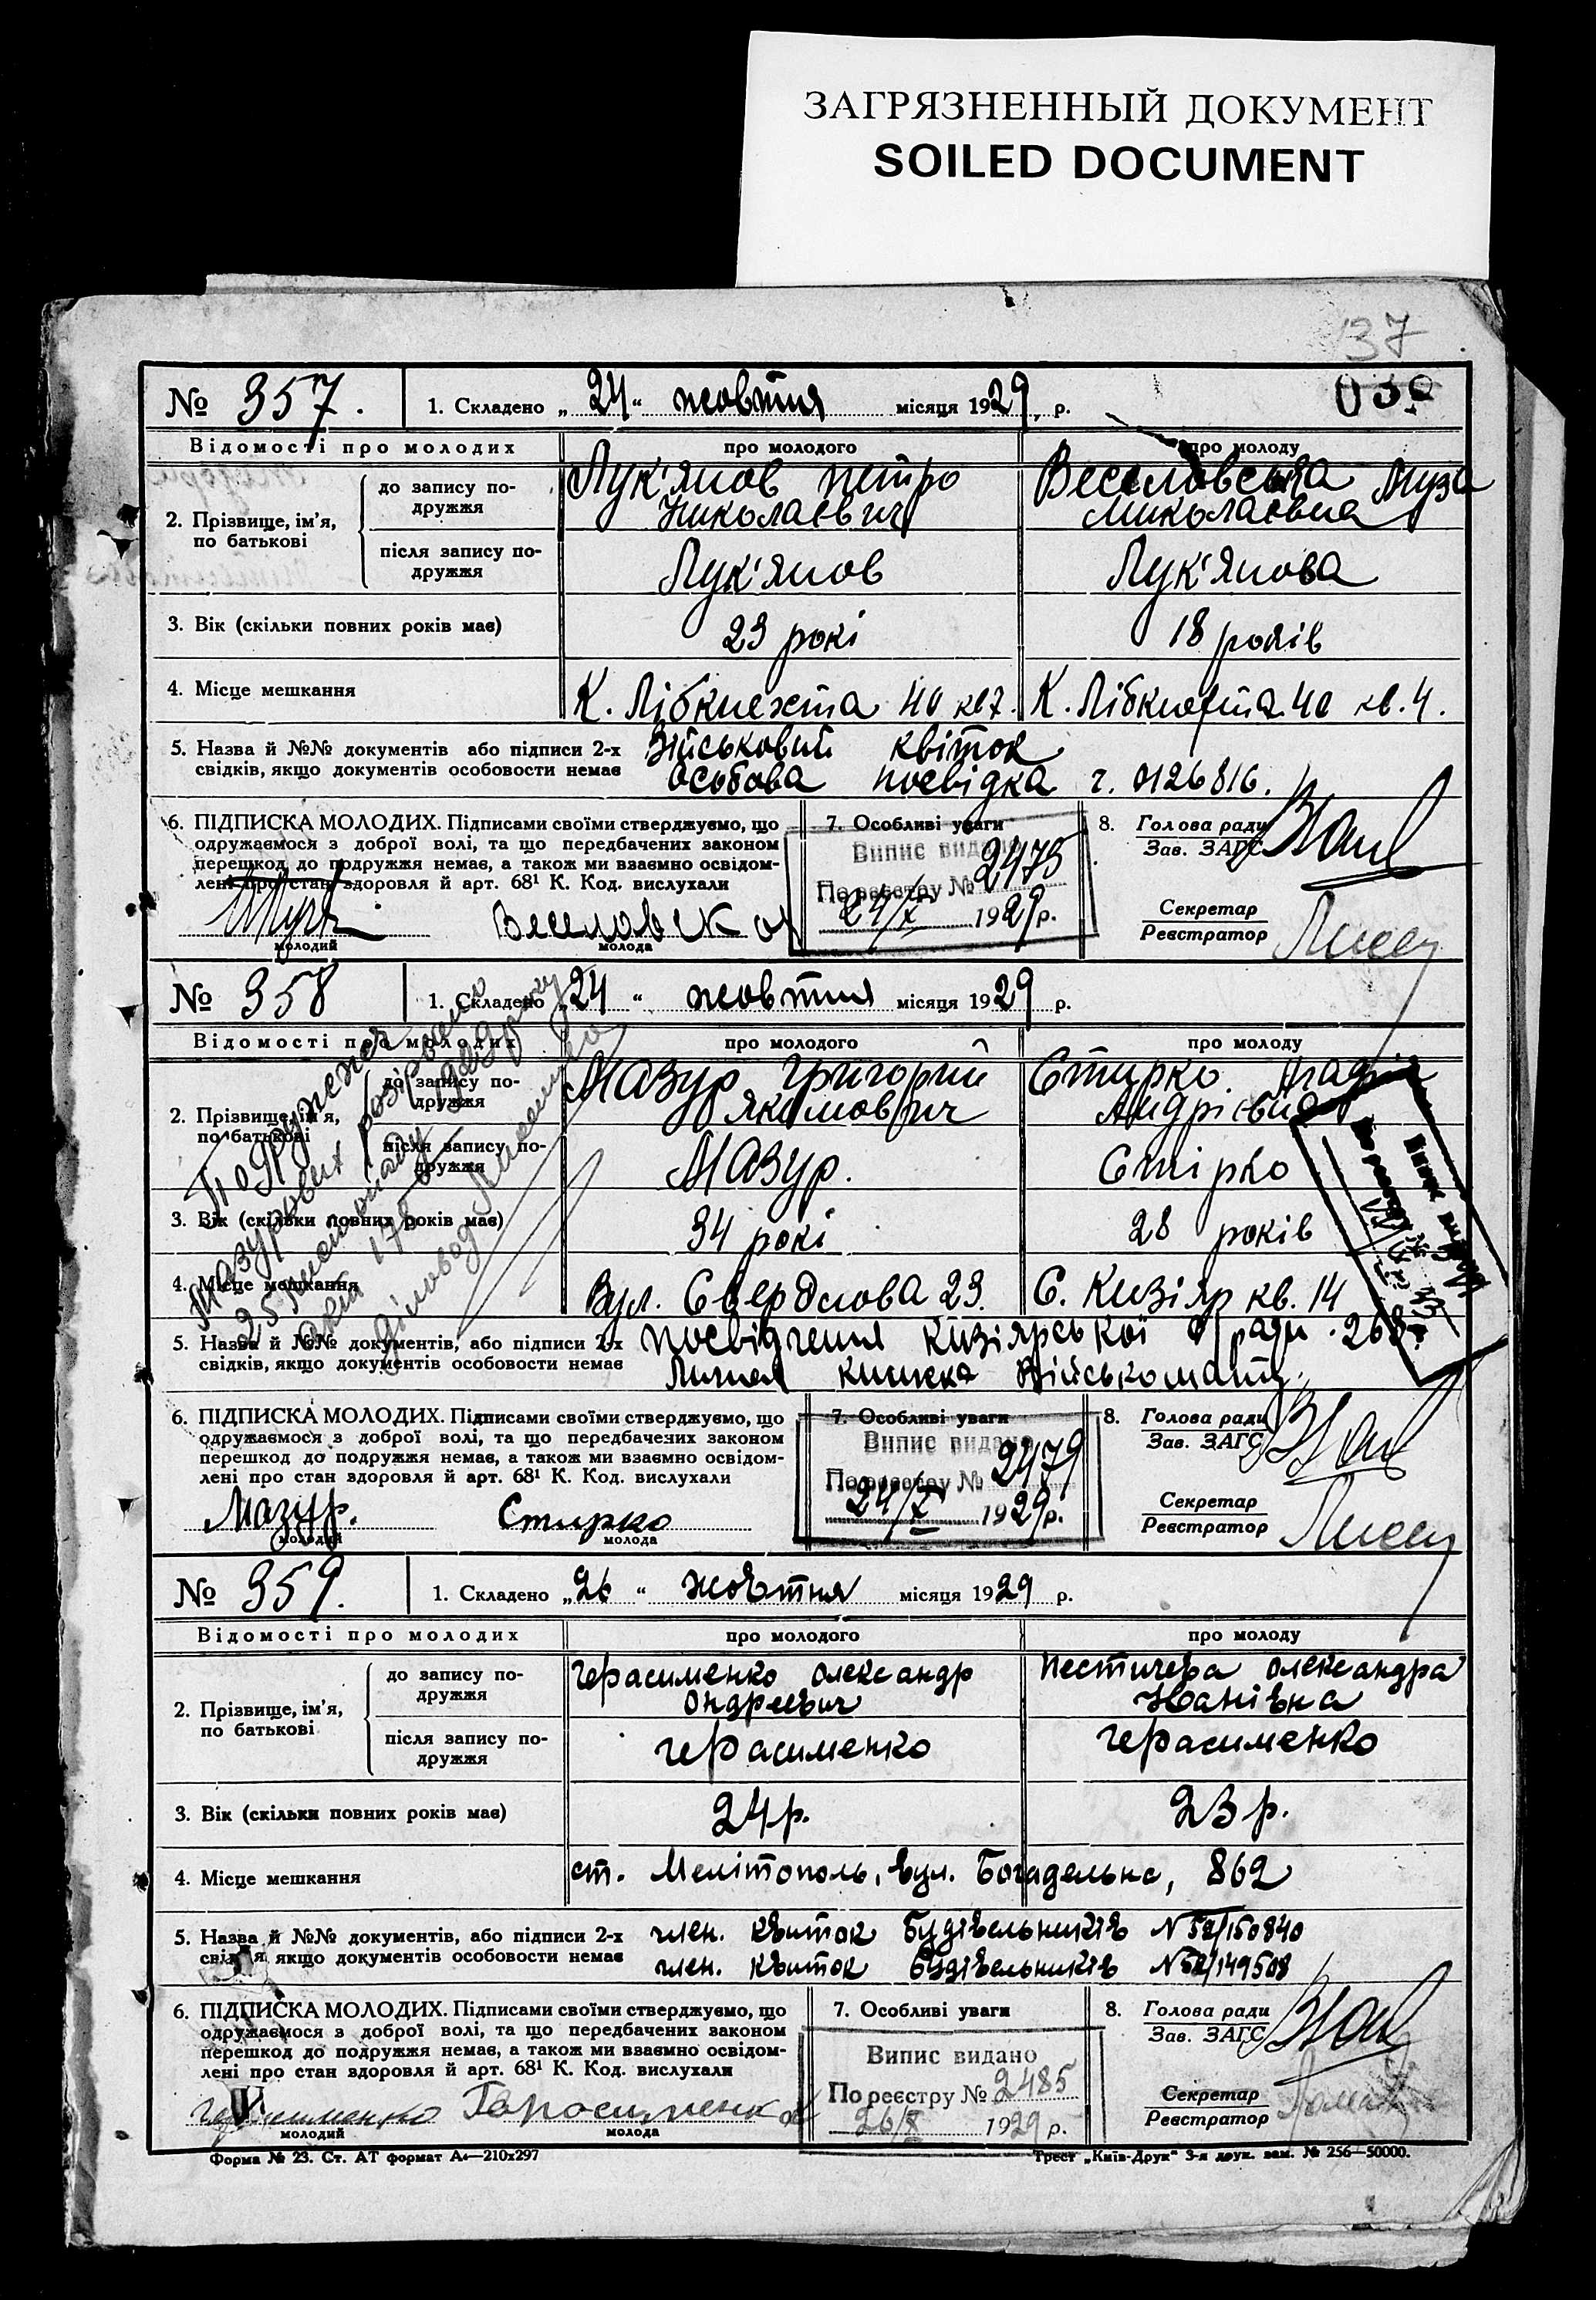 ЗАГРЯЗНЕННЫЙ ДОКУМЕНТ
SOILED DOCUMENT
37
№ 357. 1. Складено „24“ жовтня місяця 1929, р.
Відомості про молодих про молодого про молоду
2. Прізвище, ім'я, по батькові
до запису подружжя
Лук'янов Петро Николаєвич
Веселовська Муза Миколаєвна
після запису подружжя
Лук'янов Лук'янова
3. Вік (скільки повних років має) 23 рокі 18 років
4. Місце мешкання К. Лібкнехта 40 кв 7. К. Лібкнехта 40 кв. 4.
5. Назва й №№ документів або підписи 2-х Військовий квіток
свідків, якщо документів особовости немає особова посвідка ч. 0126816.
6. ПІДПИСКА МОЛОДИХ. Підписами своїми стверджуємо, що
одружаємося з доброї волі, та що передбачених законом
перешкод до подружжя немає, а також ми взаємно освідом-
лені про стан здоровля й арт. 68¹ К. Код. вислухали
молодий молода
7. Особливі уваги
Випис видано
По реєстру № 2475
24/X 1929 р.
8. Голова ради
Зав. ЗАГС
Секретар
Реєстратор
№ 358 1. Складено „24“ жовтня місяця 1929 р.
Відомості про молодих про молодого про молоду
Подружжя
Мазурових розірвано
25 листопаду
акт 178
Діловод
2. Прізвище, ім'я, по батькові
до запису подружжя
Мазур Григорий Якимович
Стирко Агафія Андрієвна
після запису подружжя
Мазур. Стірко
3. Вік (скільки повних років має) 34 рокі 28 років
4. Місце мешкання Вул. Свердлова 23. С. Кизіяр кв. 14
5. Назва й №№ документів, або підписи 2-х посвідчення Кизіярської с/ради
свідків, якщо документів особовости немає Лична книжка Військомату.
6. ПІДПИСКА МОЛОДИХ. Підписами своїми стверджуємо, що
одружаємося з доброї волі, та що передбачених законом
перешкод до подружжя немає, а також ми взаємно освідом-
лені про стан здоровля й арт. 68¹ К. Код. вислухали
Мазур. Стирко
молодий молода
7. Особливі уваги
Випис видано
По реєстру № 2479
24/X 1929 р.
8. Голова ради
Зав. ЗАГС
Секретар
Реєстратор
№ 359. 1. Складено „26“ жовтня місяця 1929 р.
Відомості про молодих про молодого про молоду
2. Прізвище, ім'я, по батькові
до запису подружжя
Герасименко Олександр Ондреєвич
Пестичева Олександра Іванівна
після запису подружжя
Герасименко Герасименко
3. Вік (скільки повних років має) 24 р. 23 р.
4. Місце мешкання ст. Мелітополь, вул. Богадельна, 862
5. Назва й №№ документів, або підписи 2-х член. квиток Будівельників N 52/150840
свідків, якщо документів особовости немає член. квиток Будівельників N 52/149508
6. ПІДПИСКА МОЛОДИХ. Підписами своїми стверджуємо, що
одружаємося з доброї волі, та що передбачених законом
перешкод до подружжя немає, а також ми взаємно освідом-
лені про стан здоровля й арт. 68¹ К. Код. вислухали
молодий молода
7. Особливі уваги
Випис видано
По реєстру № 2485
26/X 1929 р.
8. Голова ради
Зав. ЗАГС
Секретар
Реєстратор
Форма № 23. Ст. АТ формат А₄—210х297
Трест „Київ-Друк“ 3-я друк. зам. № 256—50000.